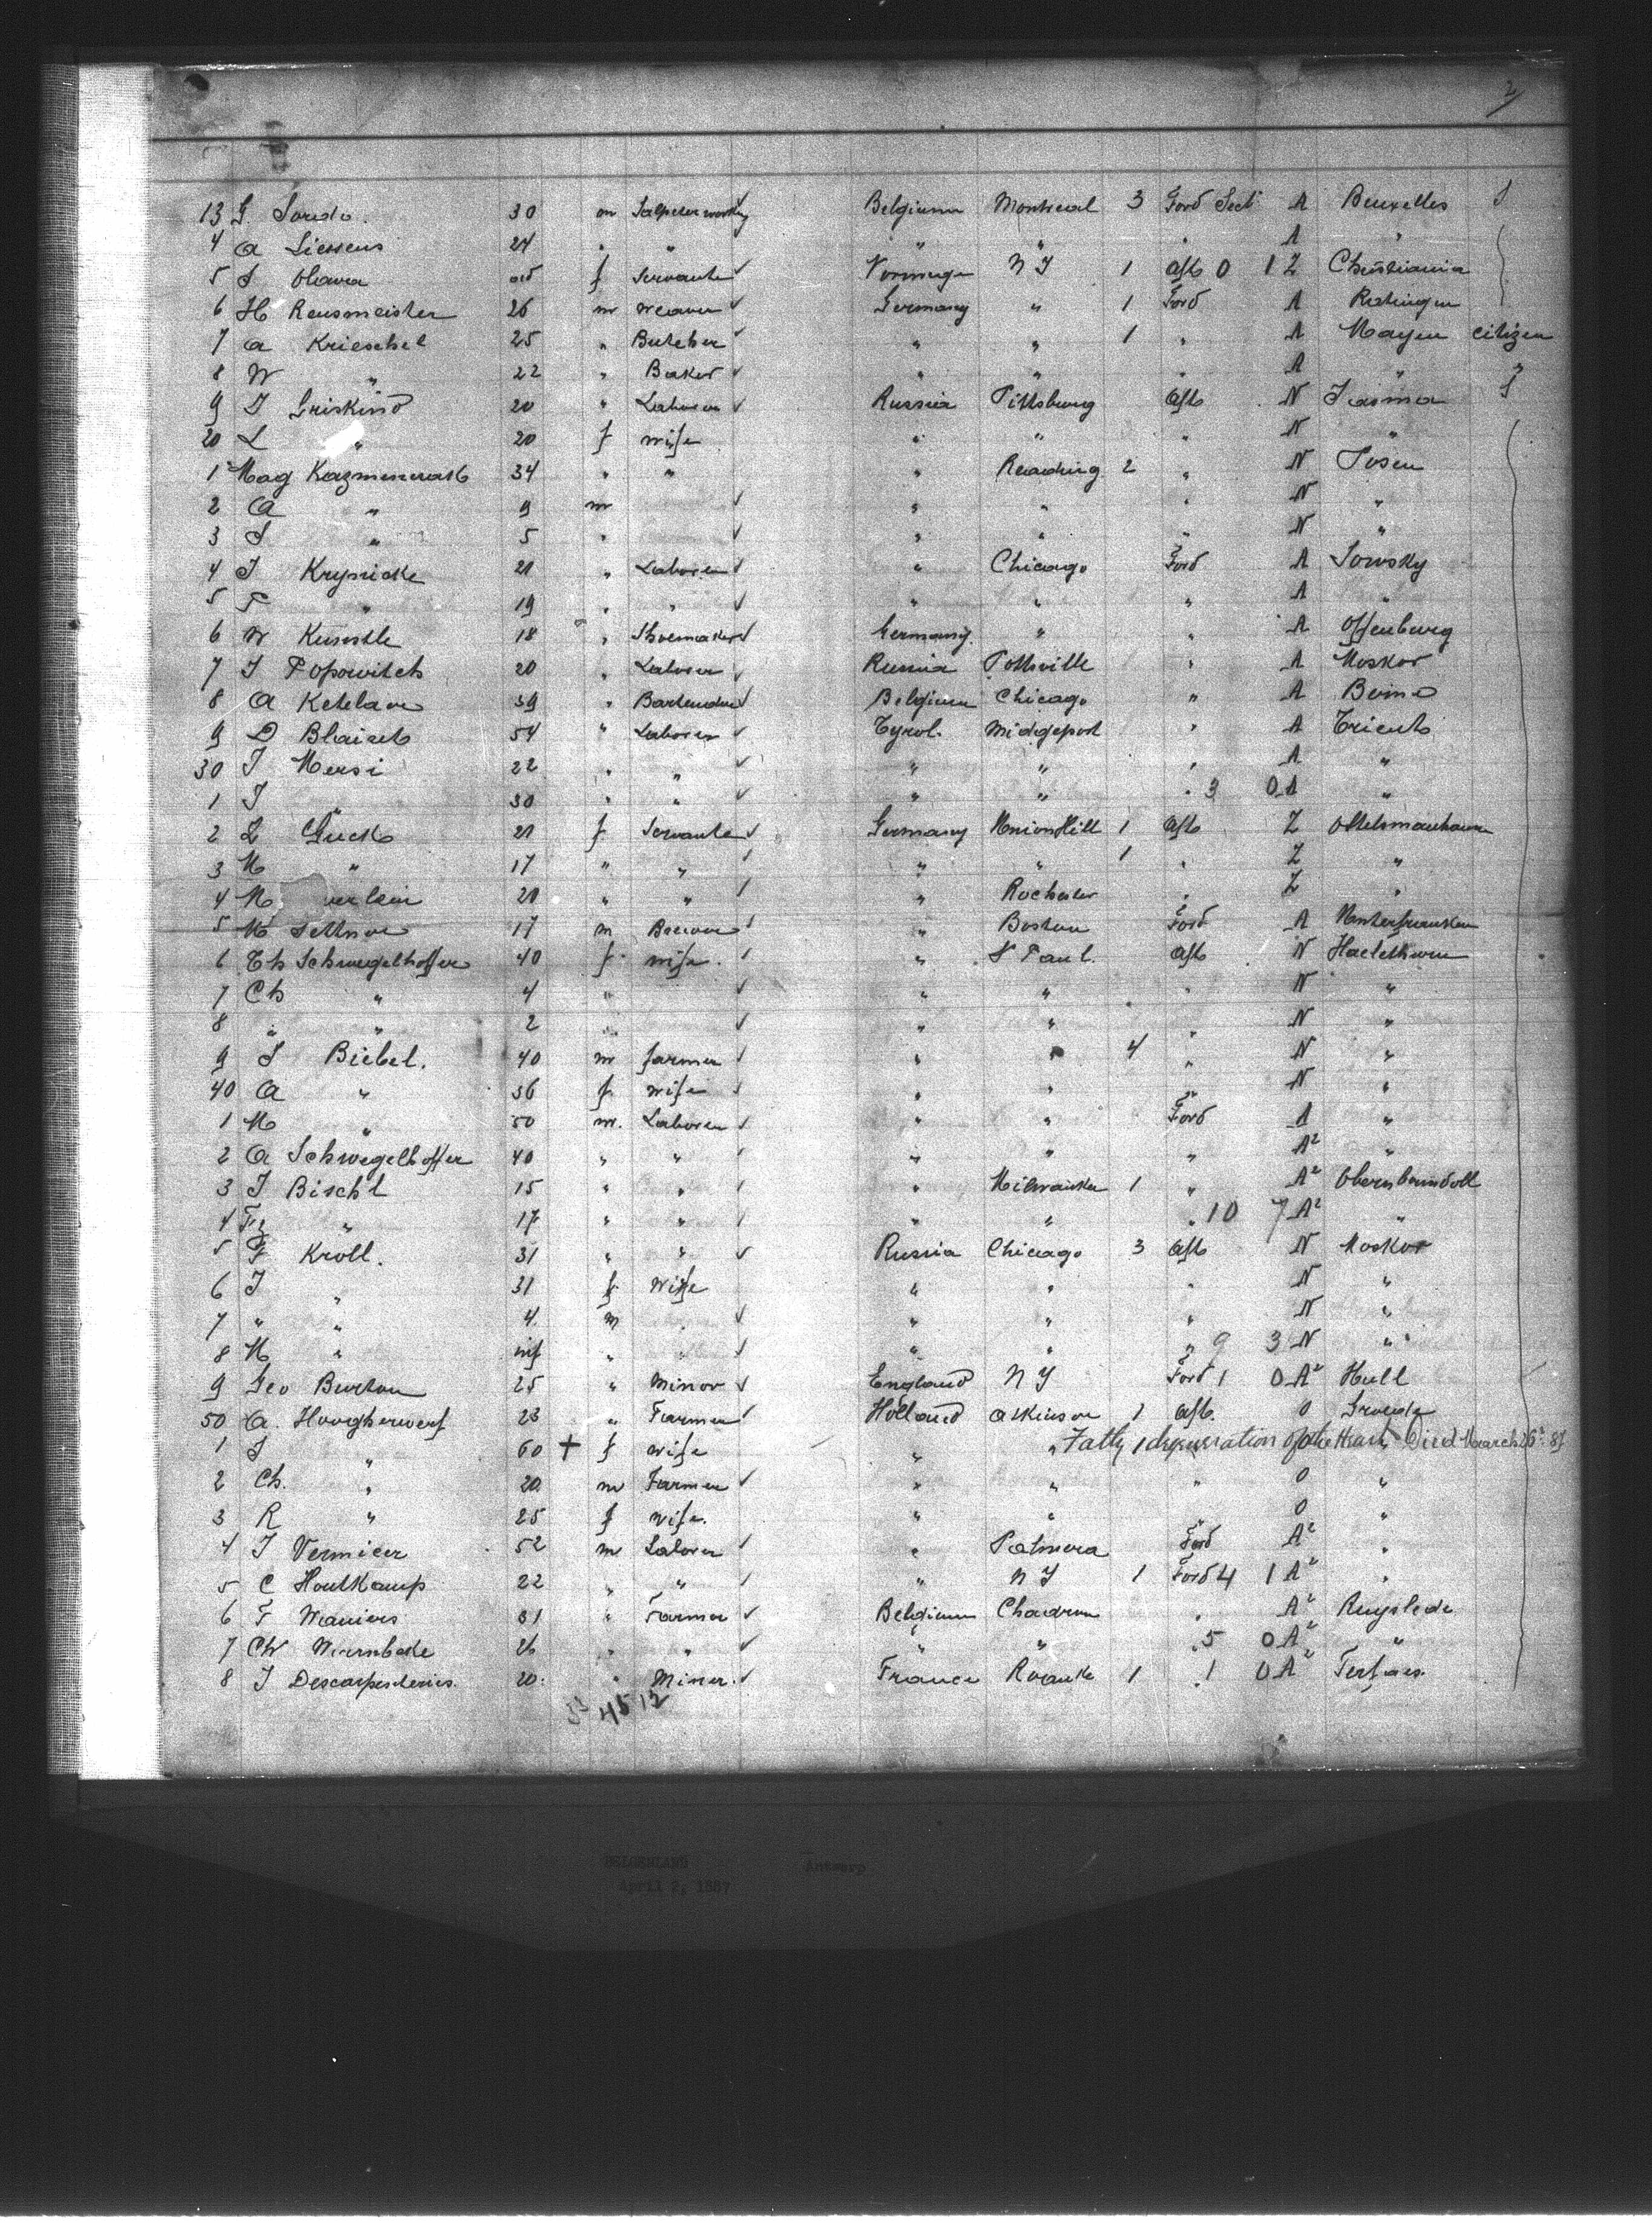 2
13 G. 30 m Belgium Montreal 3 Ford Sect A Bruxelles
4 a Liessens 24 " " " " " A "
5 S Olava f Servante ✓ N Y 1 aft 0 1 Z Christiania
6 H Rensmeister 26 m weaver ✓ Germany " 1 Ford A Ratingen
7 a Krieschel 25 " Butcher ✓ " " 1 " A Mayen citizen
8 W " 22 " Baker ✓ " " " A " "
9 I Griskind 20 " Laborer ✓ Russia Pittsburg aft N
20 L " 20 f wife " " " N "
1 Mag 34 " " " Reading 2 " N Posen
2 a " 9 m ✓ " " " N "
3 S " 5 " ✓ " " " N "
4 I Krynicke 21 " Laborer ✓ " Chicago Ford A Sowsky
5 " 19 " " ✓ " " " A "
6 W Kunstle 18 " Shoemaker ✓ Germany " " A Offenburg
7 I Popowitch 20 " Laborer ✓ Russia Pottsville " A Moskov
8 a Ketelaer 39 " Bartender ✓ Belgium Chicago " A
9 D 54 " Laborer ✓ Tyrol. Midgeport " A Trient
30 I Mersi 22 " " ✓ " " " A "
1 I " 30 " " ✓ " " " 3 0 A "
2 L Guck 21 f Servante ✓ Germany Union Hill 1 aft Z
3 M " 17 " " ✓ " " 1 " Z "
4 M erlein 21 " " ✓ " Rochester " Z "
5 M 17 m Brewer ✓ " Boston Ford A Unterfranken
6 Th Schwegelhoffer 40 f wife. ✓ " S Paul. aft N
7 Ch " 4 " ✓ " " " N "
8 " " 2 " ✓ " " " N "
9 S Biebel. 40 m farmer ✓ " " 4 " N "
40 a " 36 f wife ✓ " " " N "
1 M " 50 m. Laborer ✓ " " Ford A "
2 a Schwegelhoffer 40 " " ✓ " " " A2 "
3 I Bischl 15 " " ✓ " Milwaukee 1 " A2
4 Fz " 17 " " ✓ " " " 10 7 A2 "
5 F Kroll. 31 " " ✓ Russia Chicago 3 aft N Moskov
6 I " 31 f Wife " " " N "
7 " " 4 m ✓ " " " N "
8 M " inf " " ✓ " " " 9 3 N "
9 Geo Burton 25 " Minor ✓ England N Y Ford 1 0 A2 Hull
50 a. Hoogherwerf 23 " Farmer ✓ Holland atkinson 1 aft. 0
1 " 60 + f wife " " Fatty degeneration of the Heart Died March 26" 87
2 Ch. " 20 m Farmer ✓ " " " 0 "
3 R " 25 f wife. " " " 0 "
4 I Vermieer 52 m Laborer ✓ " Palmera Ford A2 "
5 C Houtkamp 22 " " ✓ " N Y 1 Ford 4 1 A2 "
6 F Waniers 31 " Farmer ✓ Belgium Chadron " A2 Ruyslede
7 CW 26 " " ✓ " " " 5 0 A2 "
8 I 20 " Miner. ✓ France Roanke 1 " 1 0 A2
45 12
BELGENLAND Antwerp
April 2, 1887